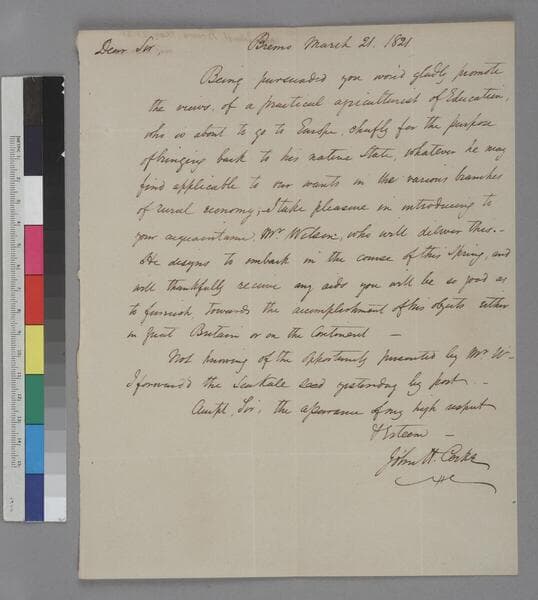 Dear Sir, Bremo March 21. 1821
Being pursuaded you wou'd gladly promote
the views, of a practical agriculturist of Education,
who is about to go to Europe, chiefly for the purpose
of bringing back to his native State, whatever he may
find applicable to our wants in the various branches
of rural economy,—I take pleasure in introducing to
your acquaintance, Mr Wilson, who will deliver this.—
He designs to embark in the course of this Spring, and
will thankfully receive any aids you will be so good as
to furnish, towards the accomplishment of his objects either
in Great Britain or on the Continent —
Not knowing of the opportunity presented by Mr W—
I forward'd the Seakale seed yesterday by post..
Accept, Sir, the assurance of my high respect
& Esteem —
John H. Cocke